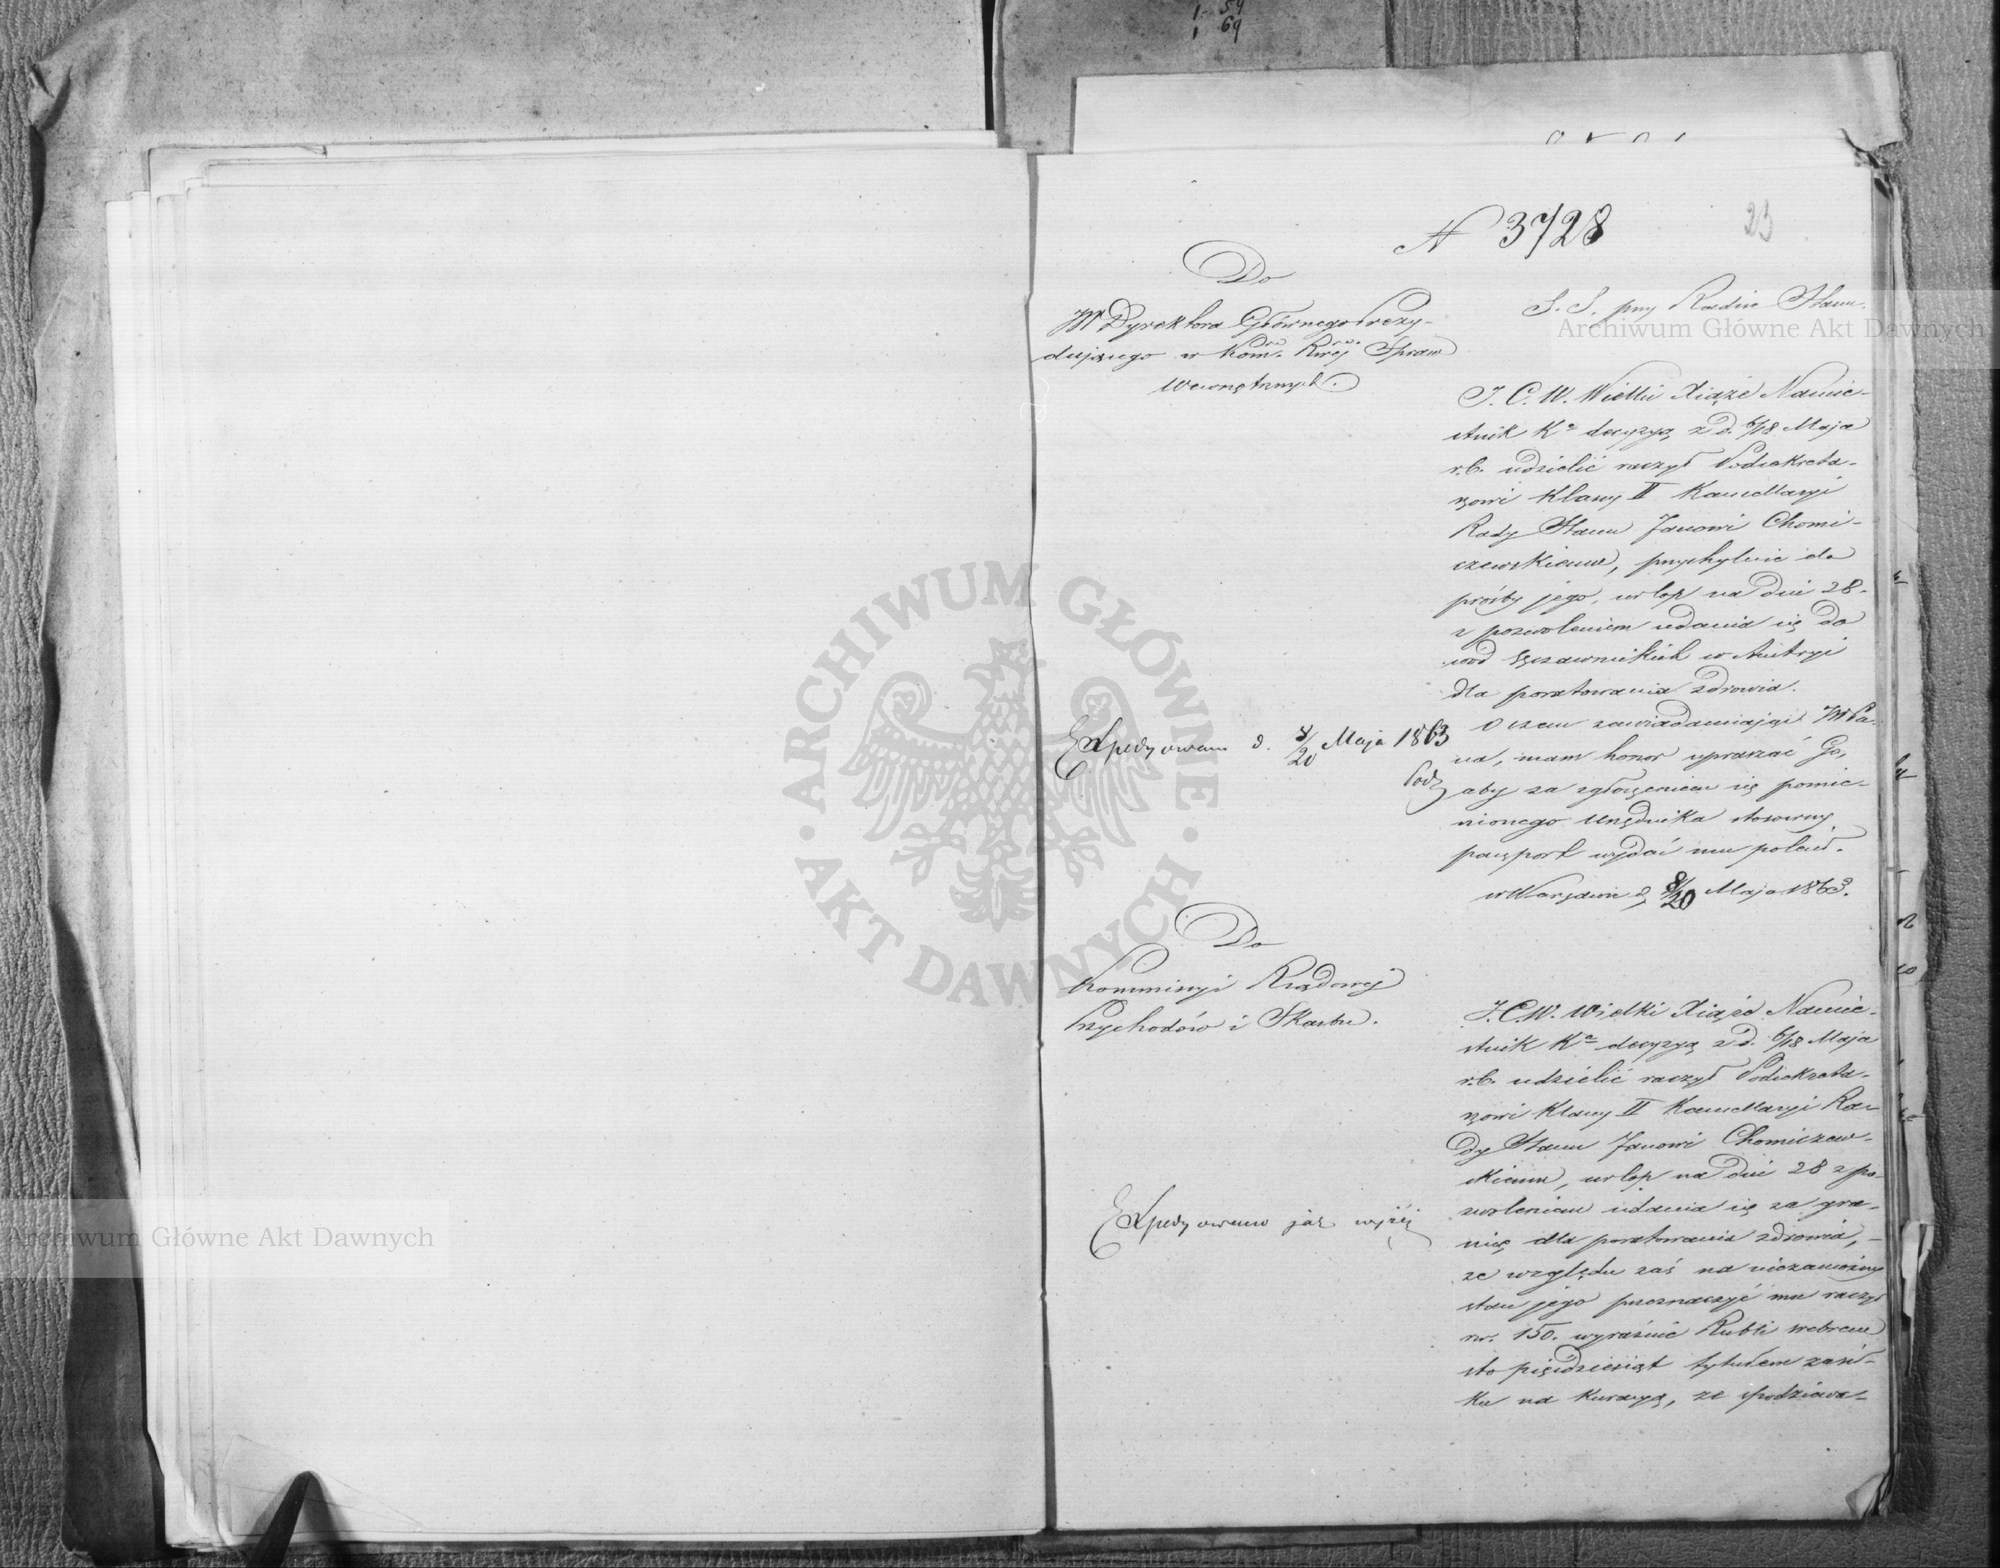 1 59
1 69
N 3728
23
Do
JW Dyrektora Głównego Prezy-
dującego w Kom. Rwéj Spraw
Wewnętrznych.
S. S. przy Radzie Stanu.
J. C. W. Wielki Xiąże Namie-
stnik Ka decyzyą z d. 6/18 Maja
r.b. udzielić raczył Podsekreta-
rzowi Klassy II Kancellaryi
Rady Stanu Janowi Chomi-
czewskiemu, przychylnie do
prośby jego, urlop na dni 28.
z pozwoleniem udania się do
wód Szczawnickich w Austryi
dla poratowania zdrowia.
O czem zawiadamiając JW Pa-
na, mam honor upraszać Go,
aby za zgłoszeniem się pomie-
nionego Urzędnika stosowny
paszport wydać mu polecił.
w Warszawie d. 8/20 Maja 1863.
Expedyowano d. 8/20 Maja 1863
Do
Kommissyi Rządowej
Przychodów i Skarbu.
J.C.W. Wielki Xiąże Namie-
stnik Ka decyzyą z d. 6/18 Maja
r.b. udzielić raczył Podsekreta-
rzowi Klassy II Kancellaryi Ra-
dy Stanu Janowi Chomiczew-
skiemu, urlop na dni 28 z po-
zwoleniem udania się za gra-
nicę dla poratowania zdrowia, -
ze względu zaś na niezamożny
stan jego przeznaczyć mu raczył
rs. 150. wyraźnie Rubli srebrem
sto pięćdziesiąt tytułem zasił-
ku na kuracyą, ze spodziewa-
Expedyowano jak wyżej
Archiwum Główne Akt Dawnych
Archiwum Główne Akt Dawnych
ARCHIWUM GŁÓWNE · AKT DAWNYCH ·